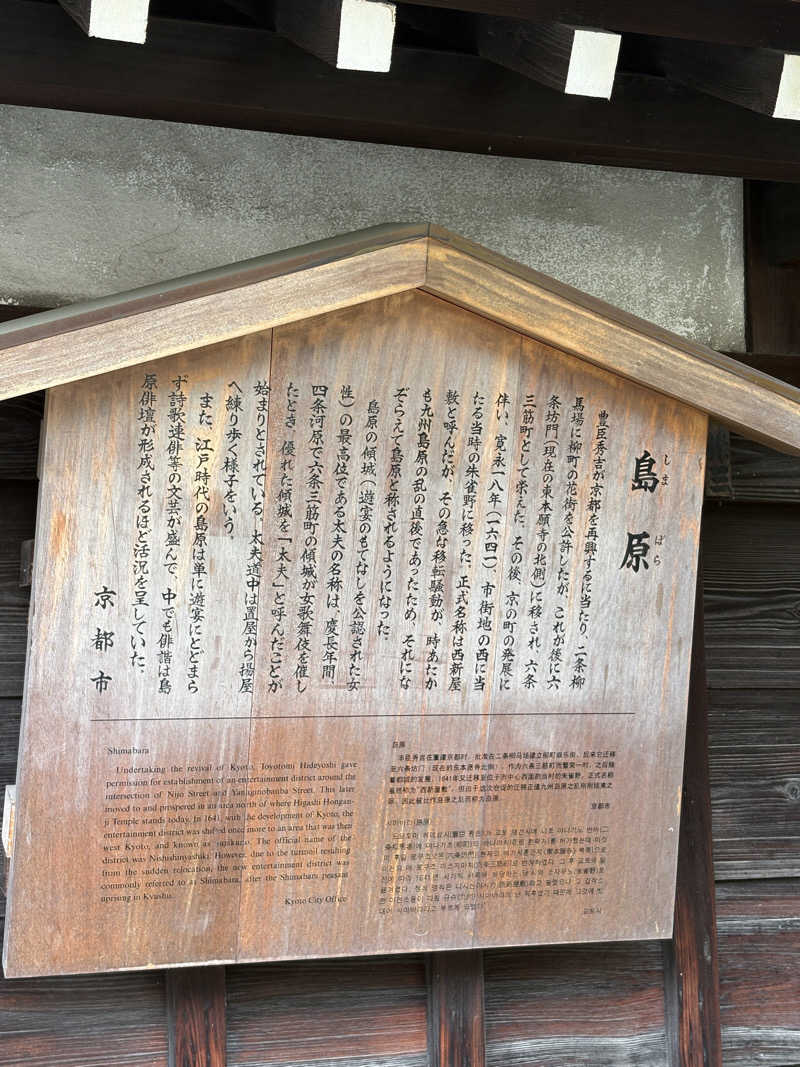 島原
しま ばら
豊臣秀吉が京都を再興するに当たり、二条柳
馬場に柳町の花街を公許したが、これが後に六
条坊門(現在の東本願寺の北側)に移され、六条
三筋町として栄えた。その後、京の町の発展に
伴い、寛永一八年(一六四一)、市街地の西に当
たる当時の朱雀野に移った。正式名称は西新屋
敷と呼んだが、その急な移転騒動が、時あたか
も九州島原の乱の直後であったため、それにな
ぞらえて島原と称されるようになった。
島原の傾城(遊宴のもてなしを公認された女
性)の最高位である太夫の名称は、慶長年間、
四条河原で六条三筋町の傾城が女歌舞伎を催し
たとき、優れた傾城を「太夫」と呼んだことが
始まりとされている。太夫道中は置屋から揚屋
へ練り歩く様子をいう。
また、江戸時代の島原は単に遊宴にとどまら
ず詩歌連俳等の文芸が盛んで、中でも俳諧は島
原俳壇が形成されるほど活況を呈していた。
京都市
Shimabara
Undertaking the revival of Kyoto, Toyotomi Hideyoshi gave
permission for establishment of an entertainment district around the
intersection of Nijo Street and Yanaginobanba Street. This later
moved to and prospered in an area north of where Higashi Hongan-
ji Temple stands today. In 1641, with the development of Kyoto, the
entertainment district was shifted once more to an area that was then
west Kyoto, and known as Sujakuno. The official name of the
district was Nishishinyashiki. However, due to the turmoil resulting
from the sudden relocation, the new entertainment district was
commonly referred to as Shimabara, after the Shimabara peasant
uprising in Kyushu.
Kyoto City Office
岛原
丰臣秀吉在重建京都时，批准在二条柳马场建立柳町娱乐街，后来它迁移
至六条坊门（现在的东本愿寺北侧），作为六条三筋町而繁荣一时。之后随
着都城的发展，1641年又迁移至位于市中心西面的当时的朱雀野。正式名称
京都市
시마바라(島原)
교토시